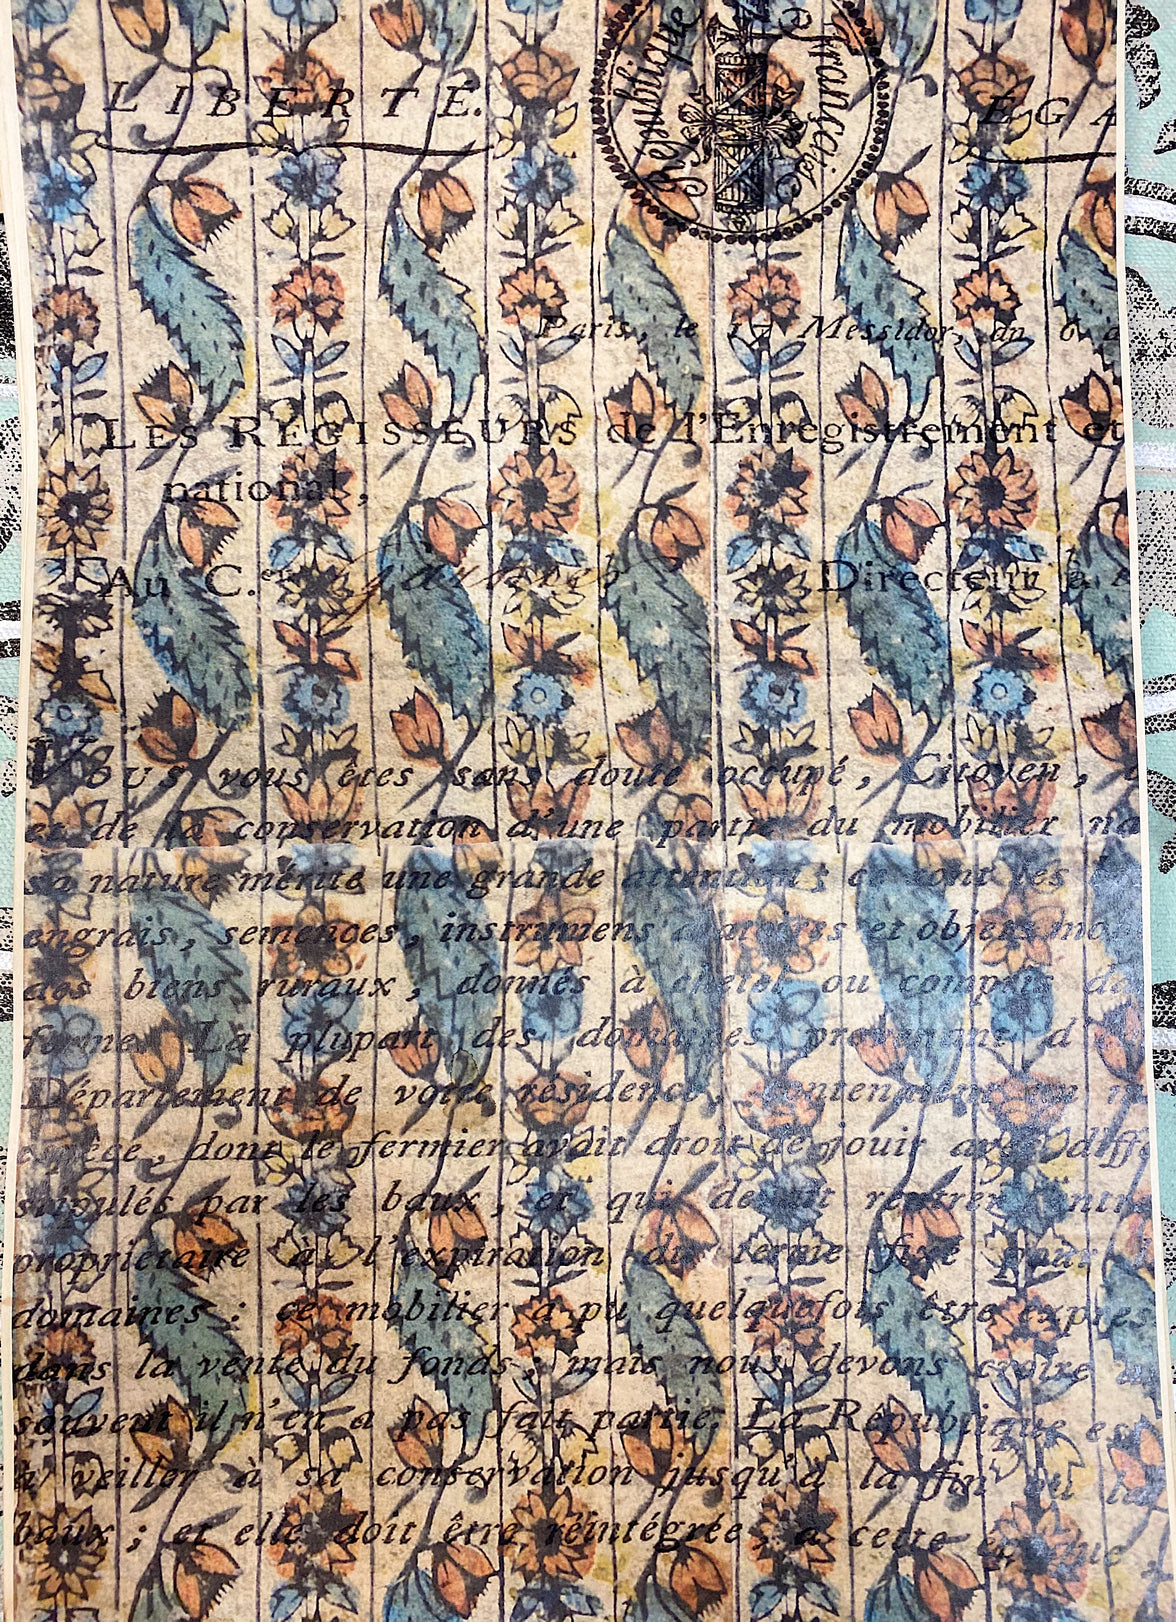 République Française
LIBERTÉ. ÉGA
Paris, le 17 Messidor, an 6
LES RÉGISSEURS de l'Enregistrement et
national,
Au C.en Directeur
Vous vous êtes sans doute occupé, Citoyen,
et de la conservation d'une partie du mobilier na
sa nature mérite une grande attention; ce sont les
engrais, semences, instrumens aratoires et objets mo
des biens ruraux, donnés à cheptel ou compris da
ferme. La plupart des domaines provenant d'
Département de votre résidence, contenaient un m
espèce, dont le fermier avait droit de jouir avec diffé
stipulés par les baux, et qui devait rentrer entre
proprietaire à l'expiration du terme fixé pour
domaines: ce mobilier a pu quelquefois être expres
dans la vente du fonds; mais nous devons croire
souvent il n'en a pas fait partie. La République es
à veiller à sa conservation jusqu'à la fin ou la
baux; et elle doit être réintégrée, à cette époque,